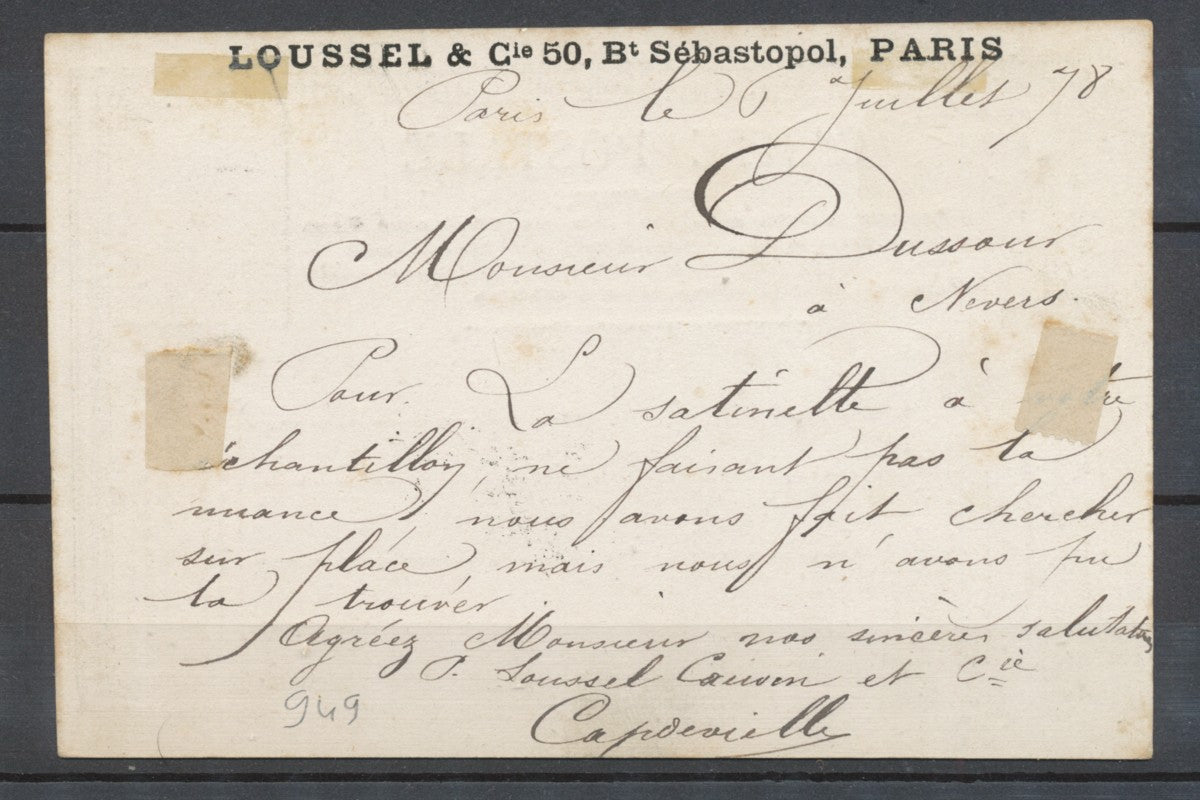 LOUSSEL & Cie 50, Bt Sébastopol, PARIS
Paris le 6 Juillet 78
Monsieur Dussour
à Nevers.
Pour La satinette à votre
échantillon, ne faisant pas la
nuance, nous avons fait chercher
sur place, mais nous n'avons pu
la trouver
Agréez Monsieur nos sincères salutations
P. Loussel Cauvin et Cie
Capdevielle
949